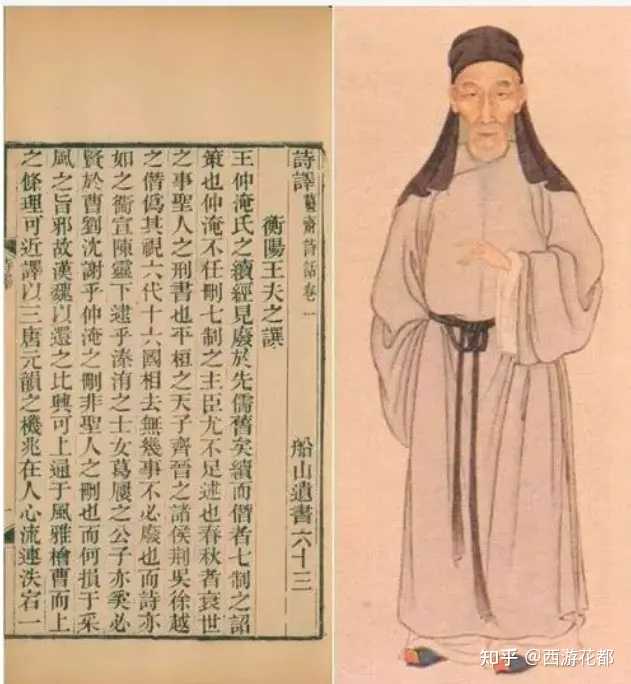 詩譯 薑齋詩話卷一 船山遺書六十三
衡陽王夫之譔
王仲淹氏之續經見廢於先儒舊矣續而僭者七制之詔
策也仲淹不任刪七制之主臣尤不足述也春秋者衰世
之事聖人之刑書也平桓之天子齊晉之諸侯荆吳徐越
之僭僞其視六代十六國相去無幾事不必廢也而詩亦
如之衞宣陳靈下逮乎溱洧之士女葛屨之公子亦奚必
賢於曹劉沈謝乎仲淹之刪非聖人之刪也而何損于采
風之旨邪故漢魏以還之比興可上通于風雅檜曹而上
之條理可近譯以三唐元韻之機兆在人心流連泆宕一
知乎 @西游花都